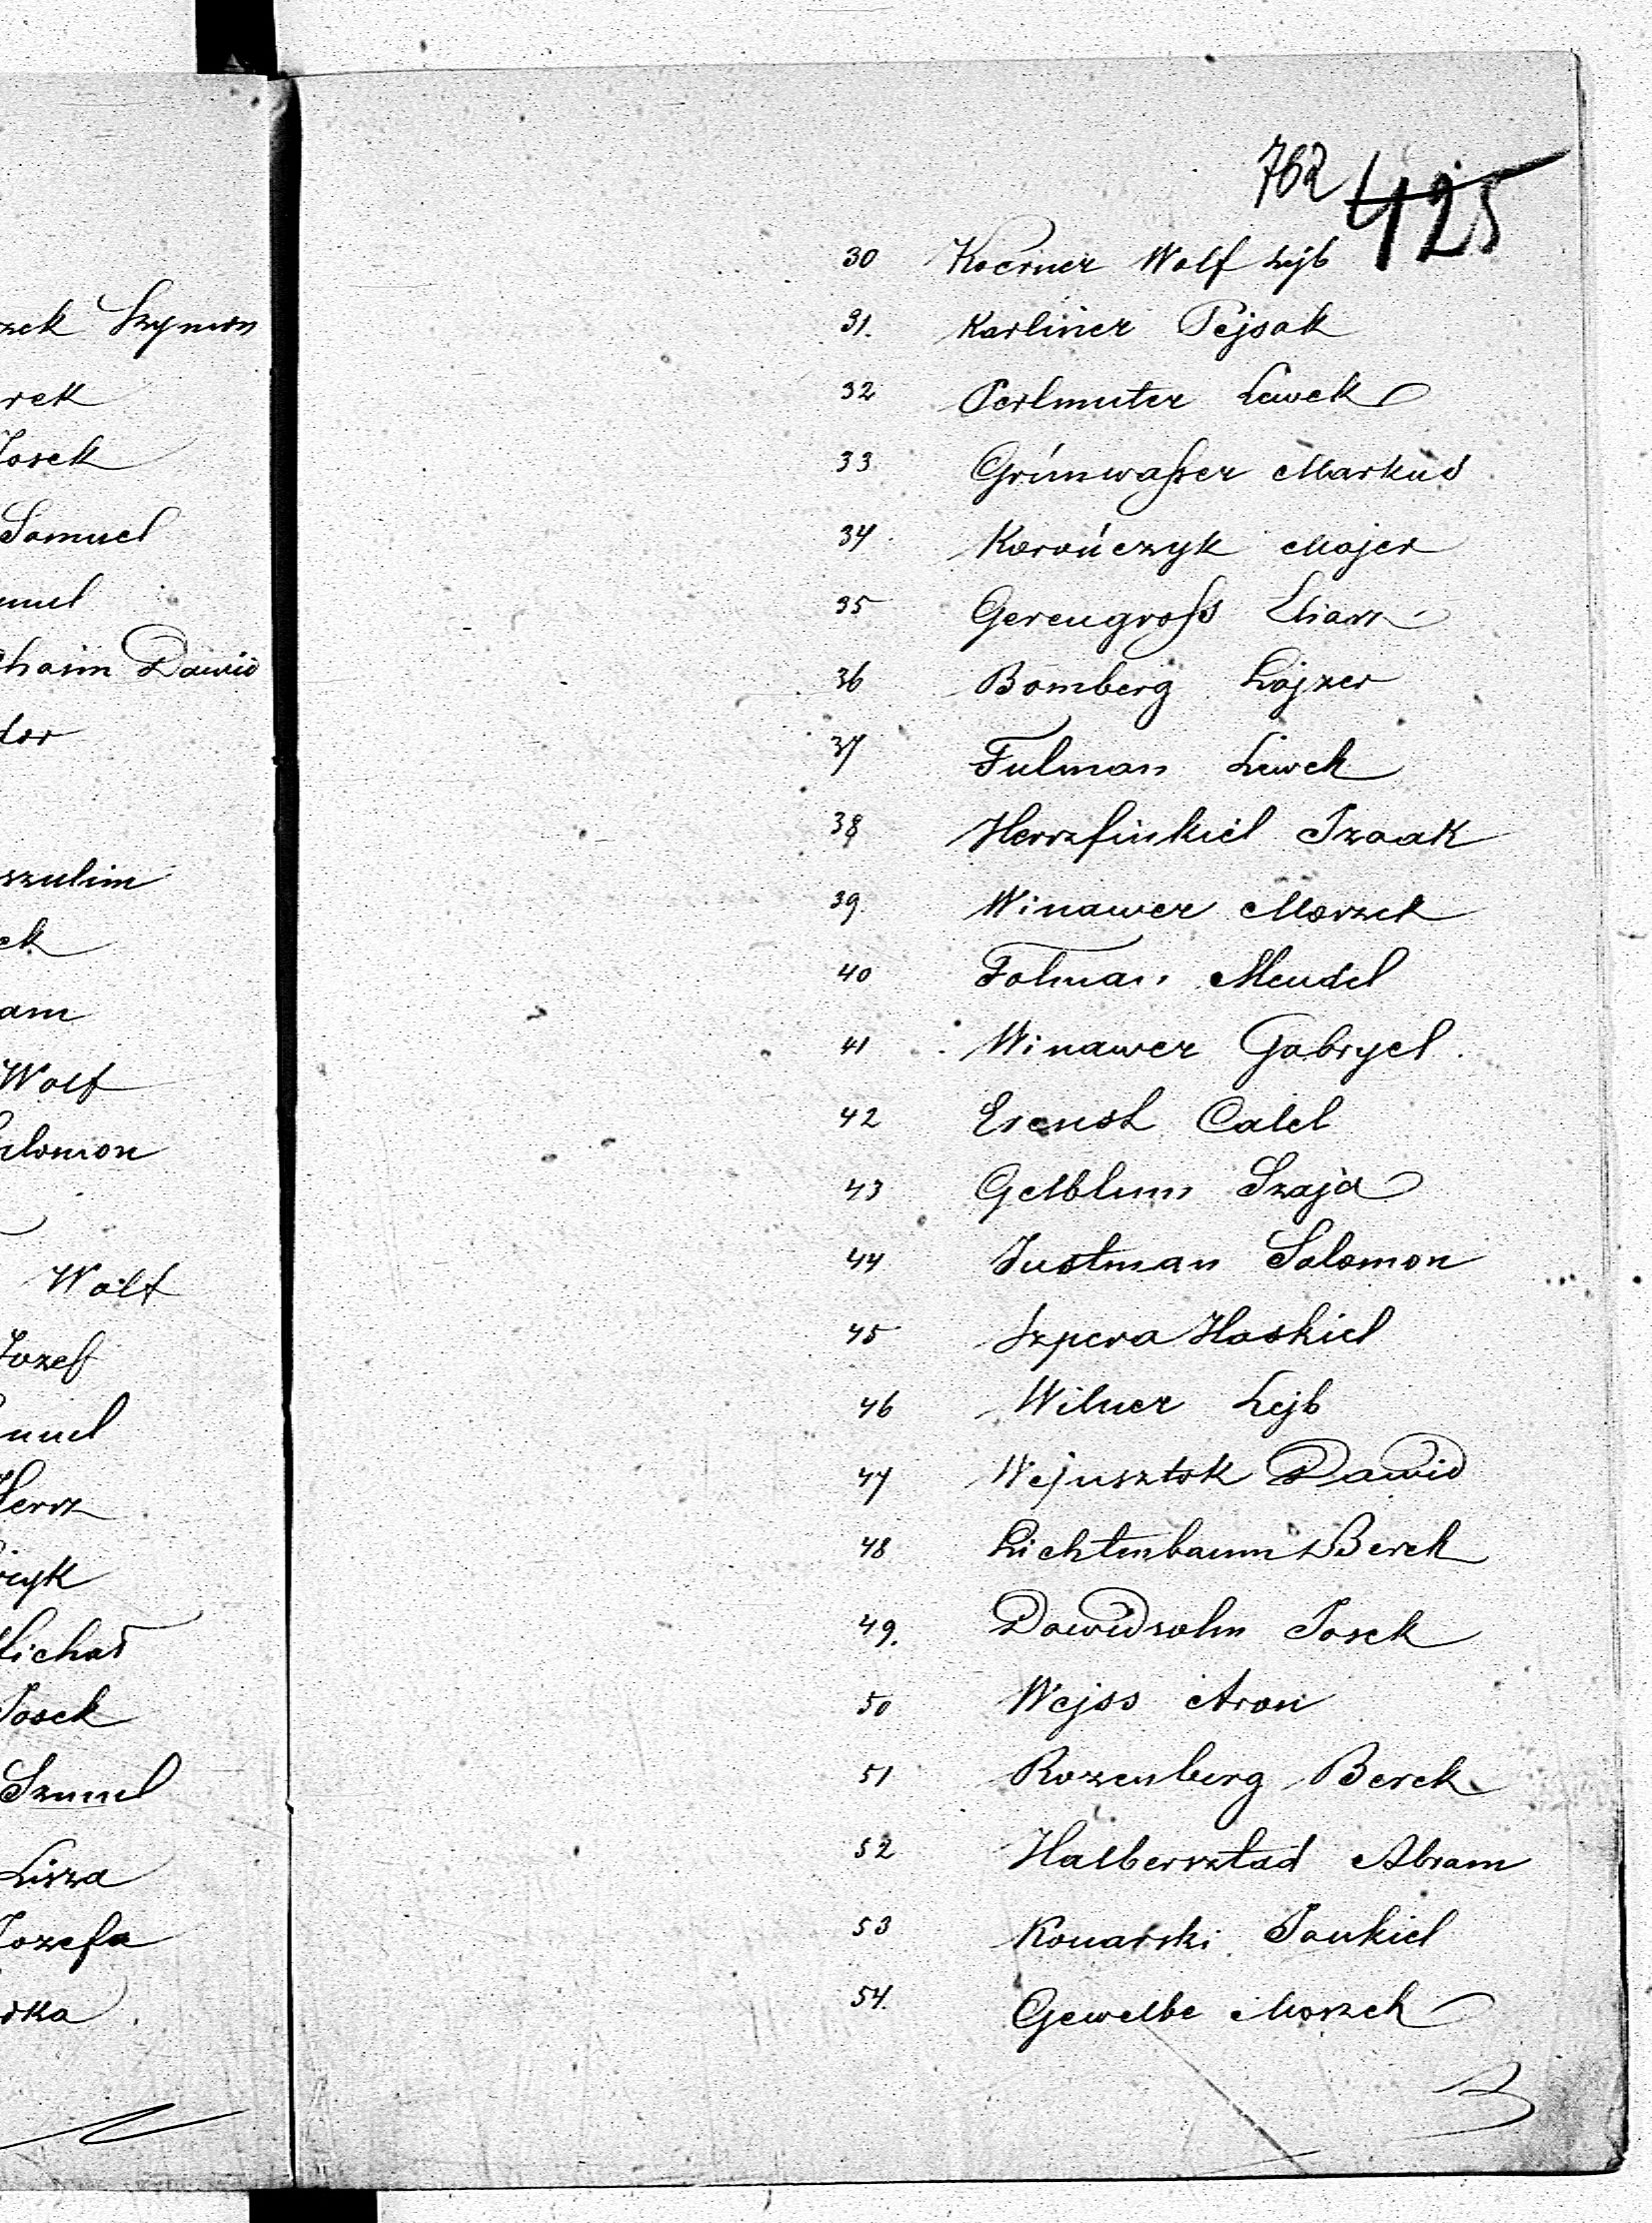 zek Szymon
rek
Josek
Samuel
muel
Chaim Dawid
dor
szulim
ek
am
Wolf
Salomon
Wolf
Jozef
muel
Hersz
Michał
Josek
Szmul
Lisza
Jozefa
762 425
30 Koerner Wolf Lejb
31. Karliner Pejsak
32 Perlmuter Lewek
33 Grünwaſser Markus
34 Korończyk Majer
35 Gereugroſs
36 Bomberg Lajzer
37 Fulman Lewek
38 Herszfinkiel Izaak
39. Winawer Moszek
40 Folman Mendel
41 Winawer Gabryel
42 Erenst Calel
43 Gelblum Szaja
44 Justman Salomon
45 Szpera Haskiel
46 Wilner Lejb
47 Wejnsztok Dawid
48 Lichtenbaum Berek
49. Dawidsohn Josek
50 Wejss Aron
51 Rozenberg Berek
52 Halbersztad Abram
53 Konarski Jankiel
54. Gewelbe Moszek